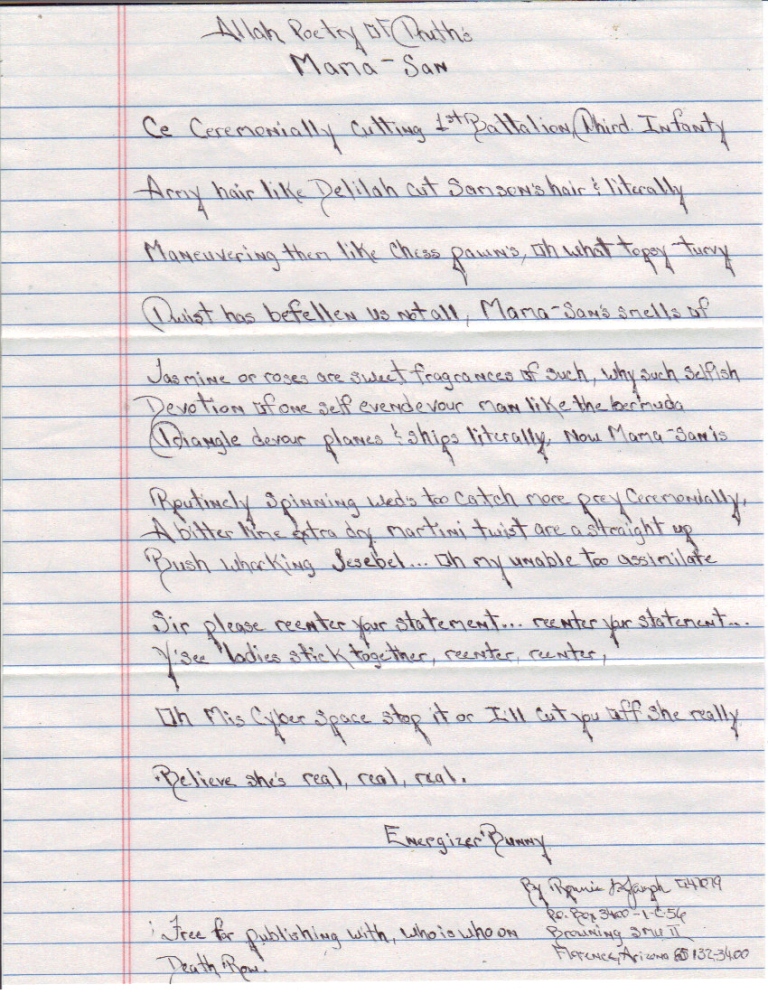 Allah Poetry Of Truth's
Mama-San
Ce Ceremonially Cutting 1st Battalion, Third. Infanty
Army hair like Delilah cut Samson's hair & literally
Maneuvering them like Chess pawn's, Oh what topsy-turvy
Twist has befellen us not all, Mama-San's smells of
Jasmine or roses are sweet fragrances of such, why such selfish
Devotion of one self even devour man like the bermuda
Triangle devour planes & ships literally, Now Mama-San is
Routinely Spinning web's too Catch more prey Ceremonially,
A bitter lime extra dry martini twist are a straight up
Bush whacking Jesebel... Oh my unable too assimilate
Sir please reenter your statement... reenter your statement...
Y'see ladies stick together, reenter, reenter,
Oh Mis Cyber Space stop it or I'll cut you off she really
Believe she's real, real, real.
Energizer Bunny
By Ronnie
P.O. Box 3400-1-C-56
Browning SMU II
Florence, Arizona 85132-3400
Free for publishing with, who is who on
Death Row.